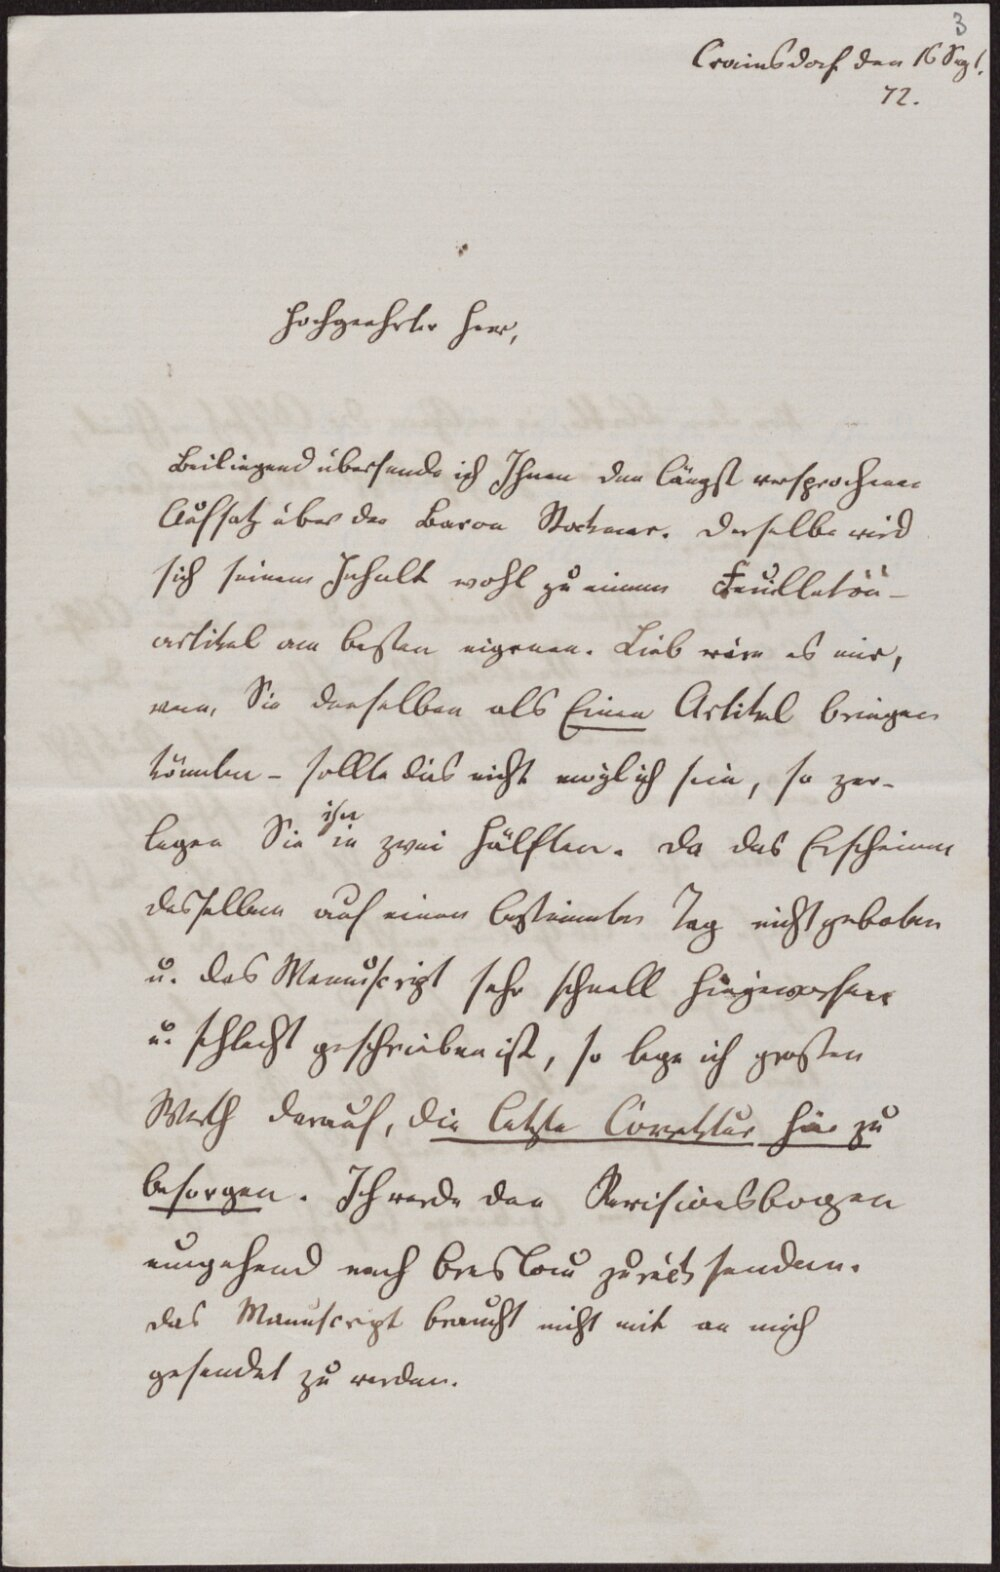 3
Crainsdorf den 16 Sept.
72.
Hochgeehrter Herr,
Beiliegend übersende ich Ihnen den längst versprochenen
Aufsatz über den Baron Stockmar. Derselbe wird
sich seinem Inhalt wohl zu einem Feuilleton-
artikel am besten eigenen. Lieb wäre es mir,
wenn Sie denselben als Einen Artikel bringen
könnten - sollte dies nicht möglich sein, so zer-
legen Sie ihn in zwei Hälften. Da das Erscheinen
desselben auf einen bestimmten Tag nicht geboten
u. das Manuscript sehr schnell hingeworfen
u. schlecht geschrieben ist, so lege ich großen
Werth darauf, die letzte Correktur hier zu
besorgen. Ich werde den Revisionsbogen
umgehend nach Breslau zurück senden.
Das Manuscript braucht nicht mit an mich
gesendet zu werden.